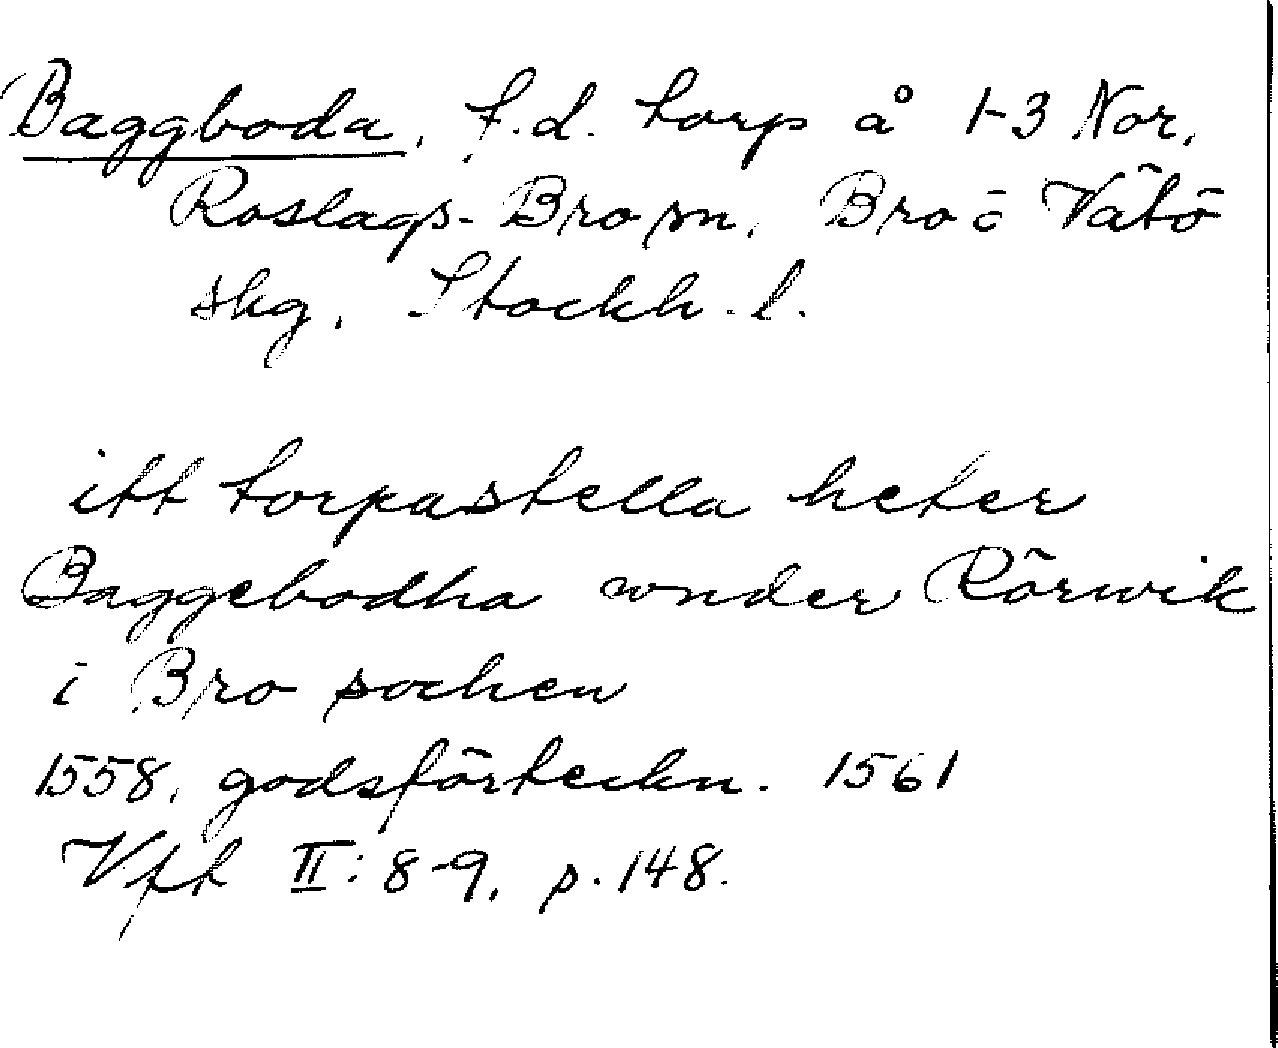 Baggboda, f.d. torp å 1-3 Nor,
Roslags-Bro sn, Bro o Vätö
skg, Stockh. l.
itt torpastella heter
Baggebodha wnder Rörwik
i Bro sochen
1558, godsförteckn. 1561
Vft II: 8-9, p. 148.